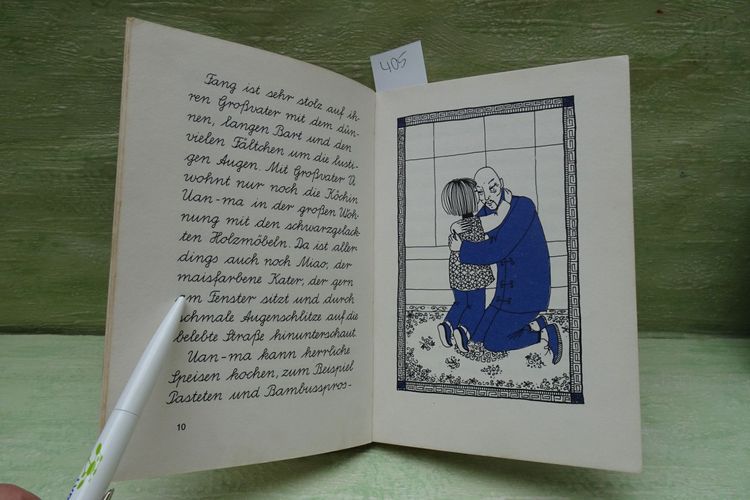 Fang ist sehr stolz auf ih-
ren Großvater mit dem dün-
nen, langen Bart und den
vielen Fältchen um die lusti-
gen Augen. Mit Großvater U
wohnt nur noch die Köchin
Uan-ma in der großen Woh-
nung mit den schwarzgelack-
ten Holzmöbeln. Da ist aller
dings auch noch Miao, der
maisfarbene Kater, der gern
am Fenster sitzt und durch
schmale Augenschlitze auf die
belebte Straße hinunterschaut
Uan-ma kann herrliche
Speisen kochen, zum Beispiel
Pasteten und Bambusspros-
10
405